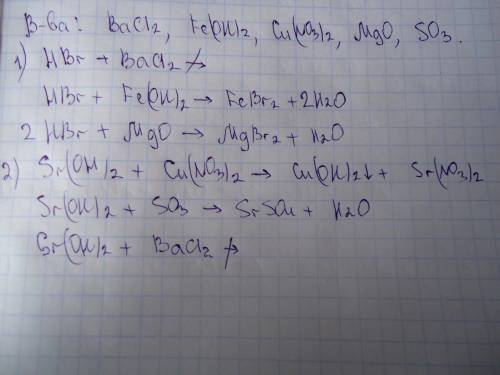 В-ва: BaCl2, Fe(OH)2, Cu(NO3)2, MgO, SO3.
1) HBr + BaCl2 ↛
HBr + Fe(OH)2 → FeBr2 + 2H2O
2 HBr + MgO → MgBr2 + H2O
2) Sr(OH)2 + Cu(NO3)2 → Cu(OH)2↓ + Sr(NO3)2
Sr(OH)2 + SO3 → SrSO4 + H2O
Sr(OH)2 + BaCl2 ↛